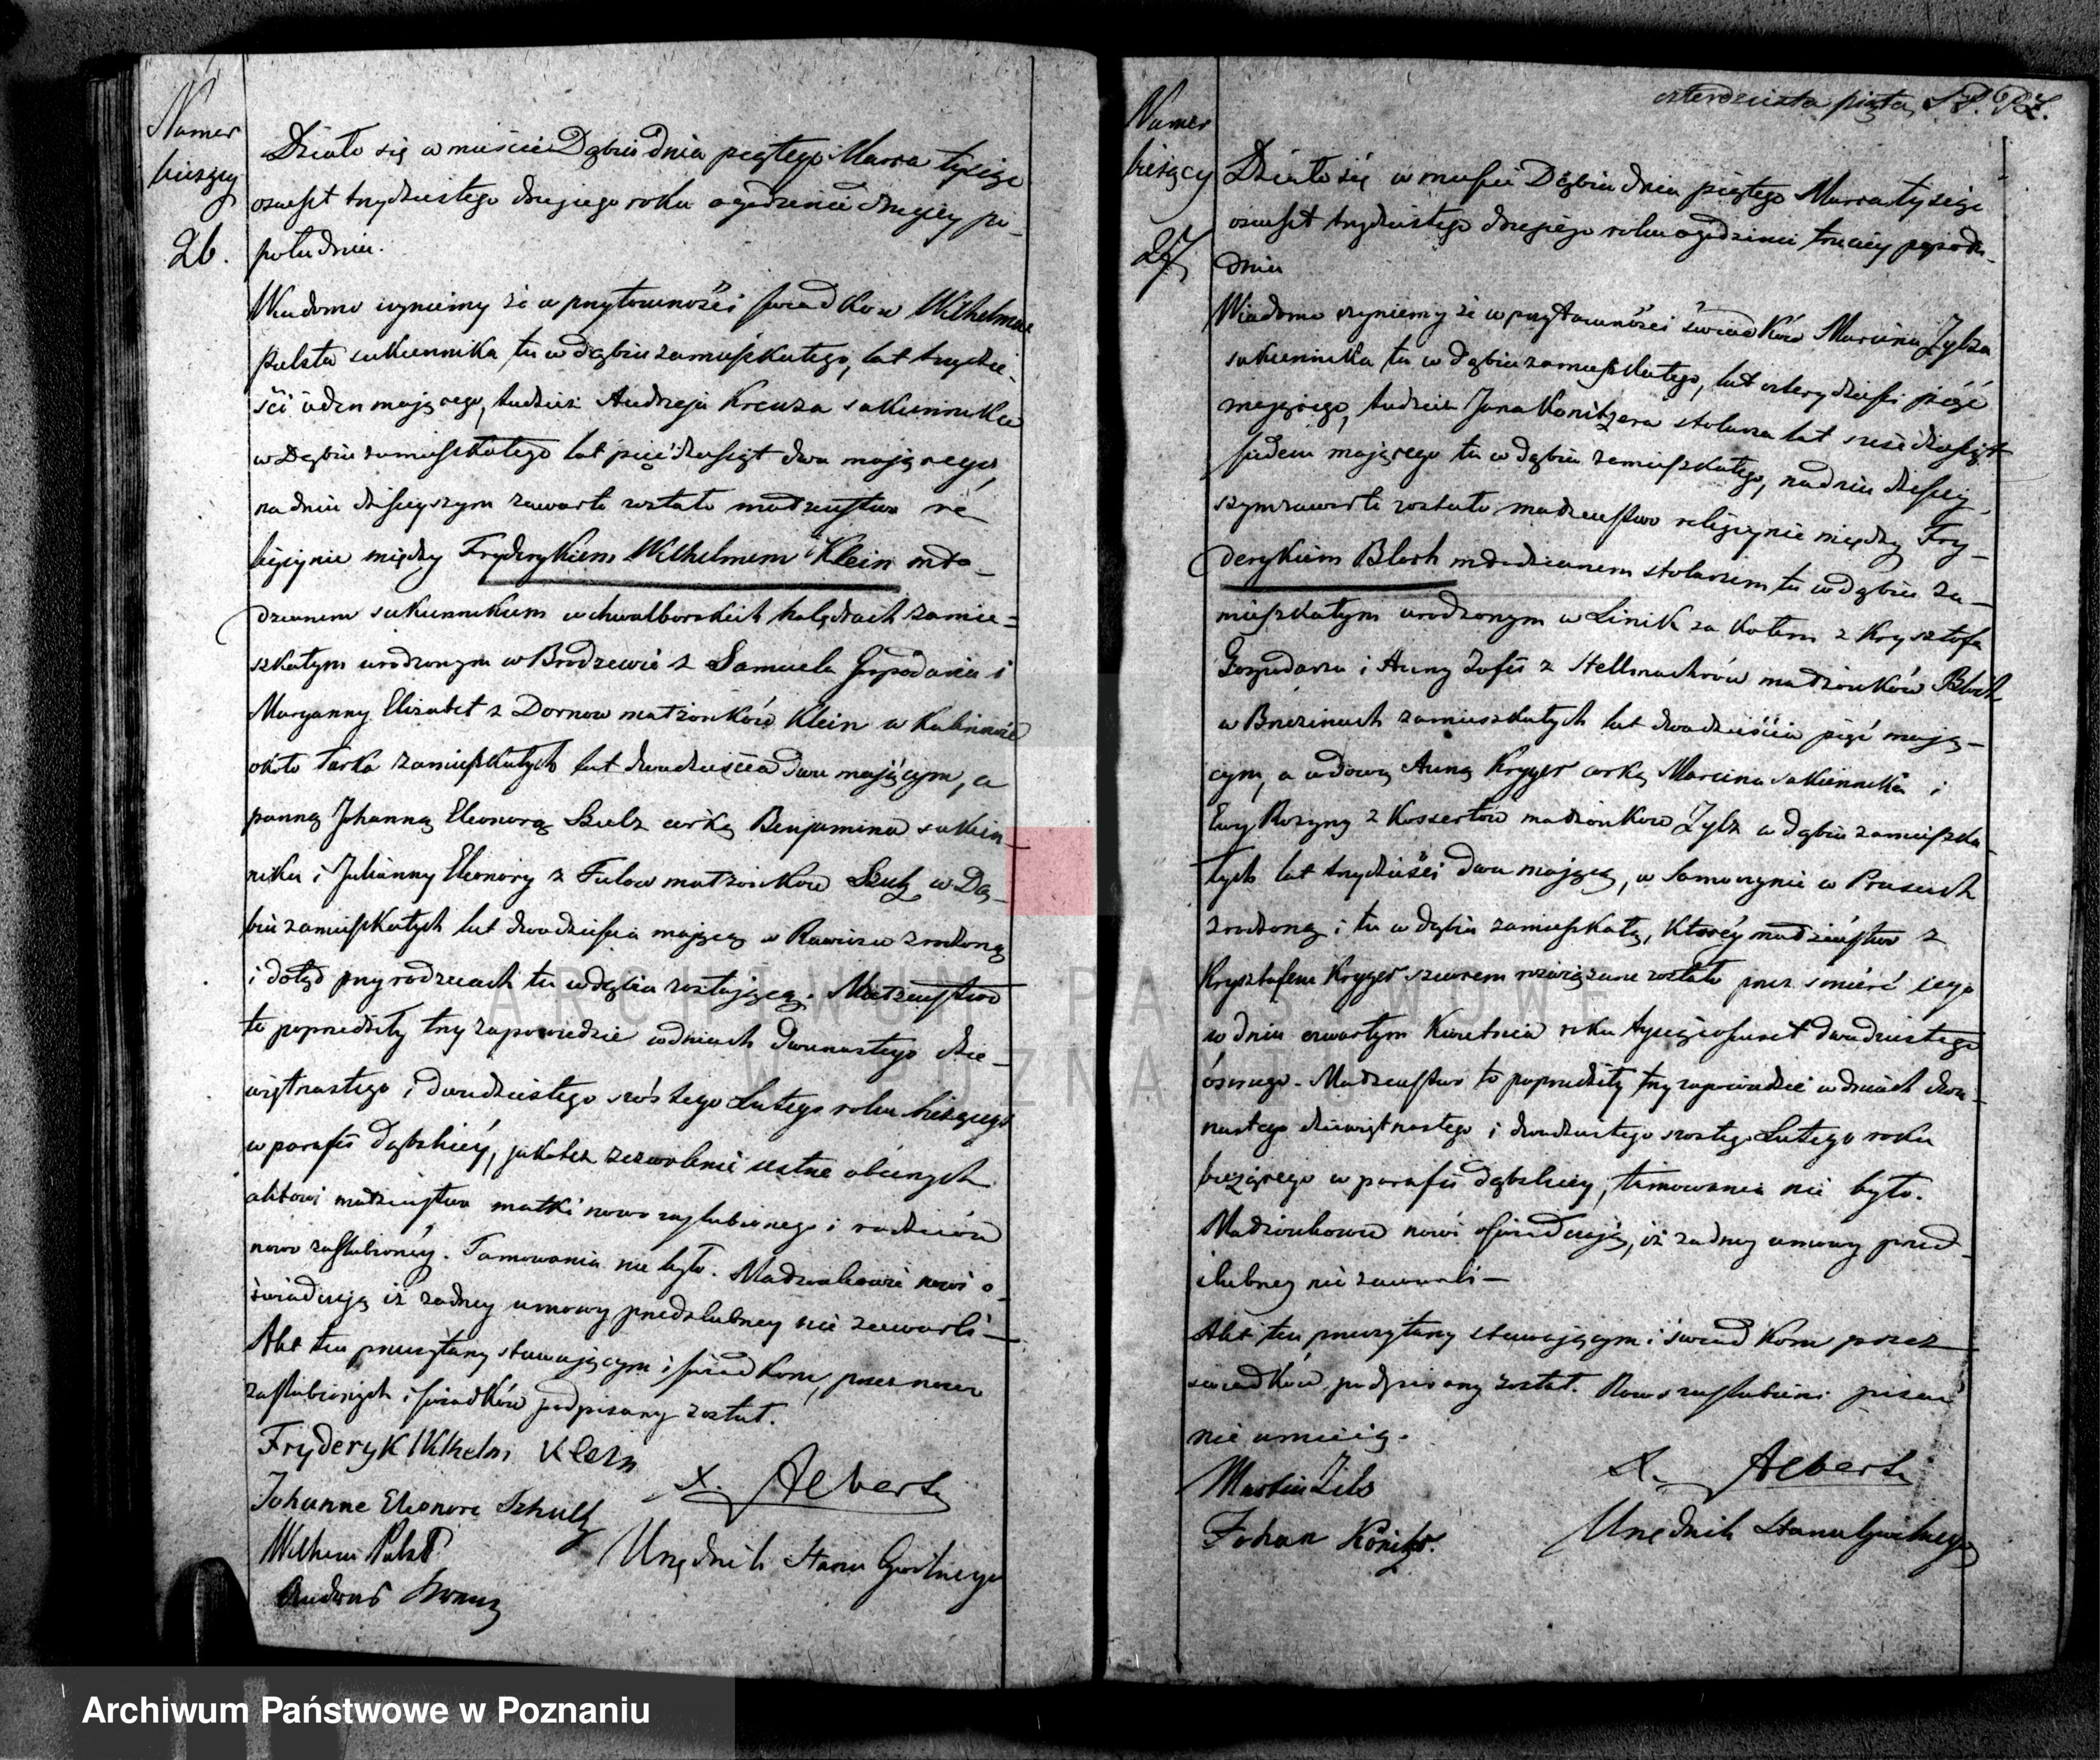 Numer
bieżący
26.
Działo się w mieście Dąbiu dnia piątego Marca tysiąc
osmset trzydziestego drugiego roku o godzinie drugiey po-
południu.
Wiadomo czyniemy że w przytomności świadków Wilhelma
Palsta sukiennika tu w Dąbiu zamieszkałego, lat trzydzie-
ści ieden maiącego, tudzież Andrzeja Kreuza sukiennika
w Dąbiu zamieszkałego lat pięćdziesiąt dwa maiącego,
na dniu dzisieyszym zawarte zostało małżeństwo re-
ligiynie między Fryderykiem Wilhelmem Klein mło-
dzianem sukiennikiem w chwalborskich holędrach zamie=
szkałym urodzonym w Brodzewie z Samuela Gospodarza i
Maryanny Elizabet z Dornow małżonków Klein w Kalinowie
około Turka zamieszkałych lat dwadzieścia dwa maiącym, a
panną Johanną Eleonorą Szulz córką Benjamina sukien-
nika i Julianny Eleonory z Fulow małżonków Szulz w Dą-
biu zamieszkałych lat dwadzieścia maiącą w Rawiczu zrodzoną
i dotąd przy rodzicach tu w Dąbiu zostaiącą. Małżeństwo
to poprzedziły trzy zapowiedzie w dniach dwunastego dzie-
więtnastego i dwudziestego szóstego Lutego roku bieżącego
w parafii Dąbskiéy, jakoteż zezwolenie ustne obecnych
aktowi małżeństwa matki nowo zaślubionego i rodziców
nowo zaślubionéy. Tamowania nie było. Małżonkowie nowi o-
świadczają iż żadney umowy przedślubney nie zawarli -
Akt ten przeczytany stawaiącym i świadkom, przez nowo
zaślubionych i świadków podpisany został.
Fryderyk Wilhelm Klein
Johanne Eleonore Schultz
Wilhem Palst
Andreas
X. Albert
Urzędnik Stanu Cywilnego
czterdziesta piąta
Numer
bieżący
27
Działo się w mieście Dąbiu dnia piątego Marca tysiąc
osmset trzydziestego drugiego roku o godzinie trzeciey popołu-
dniu
Wiadomo czyniemy że w przytomności świadków Marcina Zylza
sukiennika tu w Dąbiu zamieszkałego, lat czterydzieści pięć
maiącego, tudzież Jana Konitzera stolarza lat sześćdziesiąt
siedem maiącego tu w Dąbiu zamieszkałego, na dniu dzisiey-
szym zawarte zostało małżeństwo religiynie między Fry-
derykiem Bloch młodzianem stolarzem tu w Dąbiu za-
mieszkałym urodzonym w Linik za Kołem z Krysztofa
Gospodarza i Anny Zofii z Hellmachrów małżonków Bloch
w Brzezinach zamieszkałych lat dwadzieścia pięć maią-
cym, a wdową Anną Kryger córką Marcina sukiennika i
Ewy Rozyny z Kossertów małżonków Zylz w Dąbiu zamieszka-
łych lat trzydzieści dwa maiącą, w Samoczynie w Prusach
zrodzoną i tu w Dąbiu zamieszkałą, któréy małżeństwo z
Krysztofem Kryger szewcem rozwiązane zostało przez śmierć iego
w dniu czwartym Kwietnia roku tysiąc osmset dwudziestego
ósmego - Małżeństwo to poprzedziły trzy zapowiedzie w dniach dwu-
nastego dziewiętnastego i dwudziestego szóstego Lutego roku
bieżącego w parafii Dąbskiey, tamowania nie było.
Małżonkowie nowi oświadczają, iż żadney umowy przed-
ślubney nie zawarli -
Akt ten przeczytany stawaiącym i świadkom przez
świadków podpisany został. Nowo zaślubieni pisać
nie umieią.
Martin Zils
Johan Könitzr.
X. Albert
Urzędnik Stanu Cywilnego
ARCHIWUM PAŃSTWOWE
W POZNANIU
Archiwum Państwowe w Poznaniu